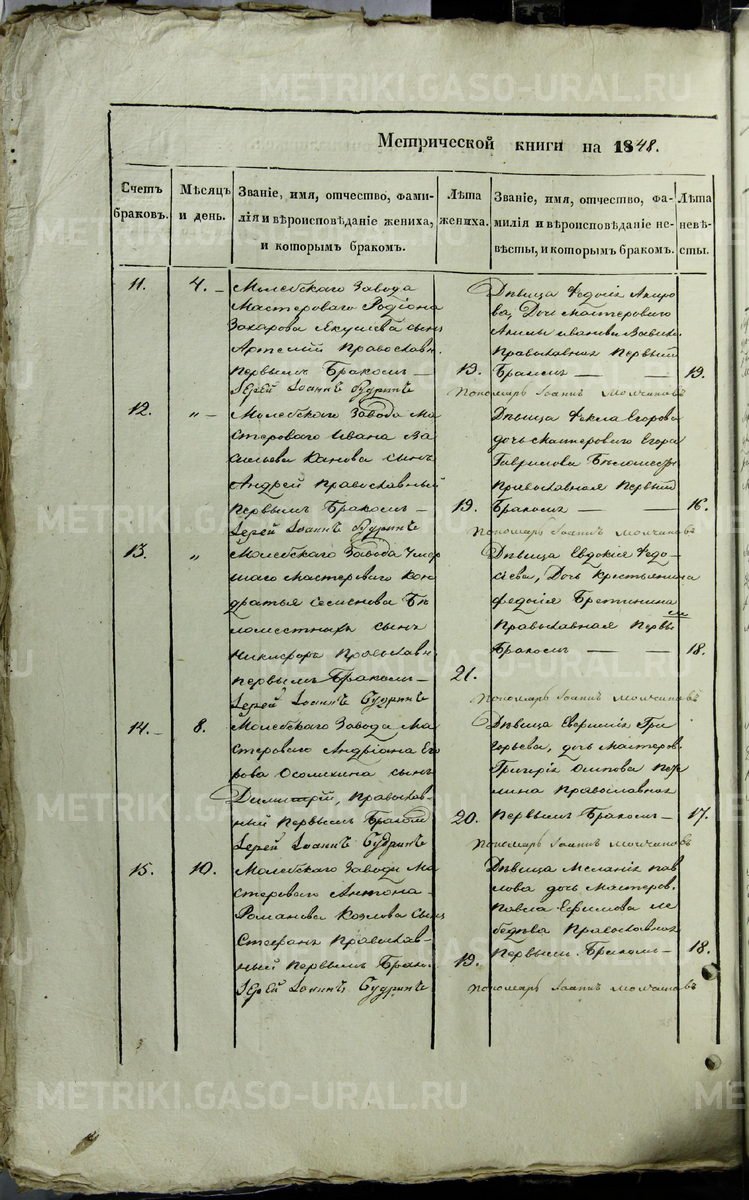 METRIKI.GASO-URAL.RU
Метрической книги на 1848.
Счетъ браковъ.
Мѣсяцъ и день.
Званіе, имя, отчество, фами-
лія и вѣроисповѣданіе жениха,
и которымъ бракомъ.
Лѣта жениха.
Званіе, имя, отчество, фа-
милія и вѣроисповѣданіе не-
вѣсты, и которымъ бракомъ.
Лѣта невѣ-
сты.
11. 4.
Молебскаго Завода
Мастероваго Родіона
Захарова сынъ
Артемій Православн.
первымъ Бракомъ
Іерей Іоаннъ Будринъ
19.
Дѣвица Федосія
Дочь мастероваго
Иванова
Православная Первымъ
Бракомъ
19.
Пономарь Іоаннъ Молчановъ
12. „
Молебскаго Завода Ма
стероваго Ивана Ва
сильева Канова сынъ
Андрей Православный
Первымъ Бракомъ
Іерей Іоаннъ Будринъ
19.
Дѣвица Фекла Егорова
дочь Мастероваго Егора
Гаврилова
Православная Первымъ
Бракомъ
16.
Пономарь Іоаннъ Молчановъ
13. „
Молебскаго Завода Умер
шаго Мастероваго Кон
дратья Бѣ
ломестныхъ сынъ
Никифоръ Православн.
первымъ Бракомъ
Іерей Іоаннъ Будринъ
21.
Дѣвица Евдокія Федо
сіева, Дочь Крестьянина
Федосія
Православная Первы
мъ
Бракомъ
18.
Пономарь Іоаннъ Молчановъ
14. 8.
Молебскаго Завода Ма
стероваго Андріона Его
рова Осолихина сынъ
Димитрій, Православ-
ный Первымъ Бракомъ
Іерей Іоаннъ Будринъ
20.
Дѣвица Гри
горьева, дочь Мастеров.
Григорія Осипова
Православная
Первымъ Бракомъ
17.
Пономарь Іоаннъ Молчановъ
15. 10.
Молебскаго Завода Ма
стероваго Антона
Романова Козлова сынъ
Стефанъ Православ-
ный Первымъ Брако.
Іерей Іоаннъ Будринъ
19.
Дѣвица Меланія Пав
лова дочь Мастеров.
Павла Ефимова Ле
бедева Православная
Первымъ Бракомъ
18.
Пономарь Іоаннъ Молчановъ
METRIKI.GASO-URAL.RU